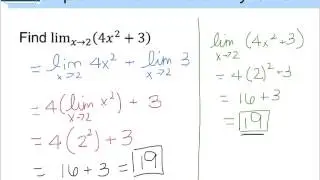 Find lim_{x→2}(4x² + 3)
= lim_{x→2} 4x² + lim_{x→2} 3
= 4(lim_{x→2} x²) + 3
= 4(2²) + 3
= 16 + 3 = 19
lim_{x→2} (4x² + 3)
= 4(2)² + 3
= 16 + 3
= 19